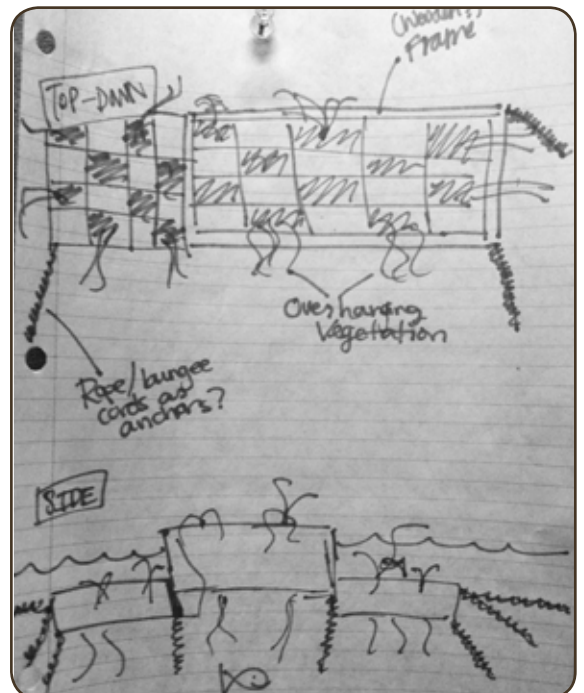 Frame
TOP-DOWN
Overhanging
Vegetation
Rope/bungee
cords as
anchors?
SIDE